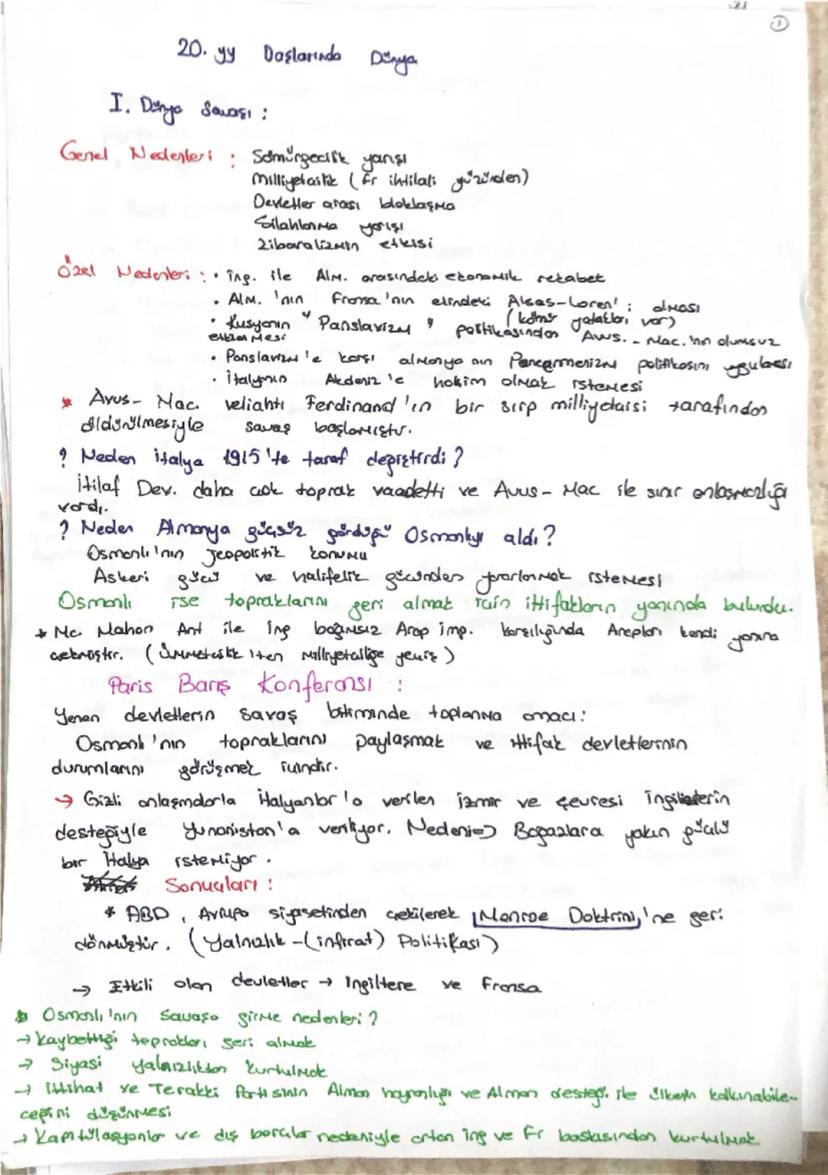 21
1
20. yy Başlarında Dünya
I. Dünya Savaşı :
Genel Nedenleri : Sömürgecilik yarışı
Milliyetçilik ( Fr ihtilali yüzünden)
Devletler arası bloklaşma
Silahlanma yarışı
Liberalizmin etkisi
Özel Nedenleri : • İng. ile Alm. arasındaki ekonomik rekabet
• Alm. 'nın Fransa'nın elindeki Alsas-Loren'i alması
(kömür yatakları var)
• Rusyanın " Panslavizm " politikasından Avus. - Mac.'nın olumsuz
etkilenmesi
• Panslavizm'e karşı almanya nın Pancermenizm politikasını uygulaması
• İtalyanın Akdeniz'e hakim olmak istemesi
* Avus- Mac. veliahtı Ferdinand'ın bir sırp milliyetçisi tarafından
öldürülmesiyle savaş başlamıştır.
? Neden italya 1915'te taraf değiştirdi ?
İtilaf Dev. daha çok toprak vaadetti ve Avus- Mac ile sınır anlaşmazlığı
vardı.
? Neden Almanya güçsüz gördüğü Osmanlıyı aldı ?
Osmanlı'nın jeopolitik konumu
Askeri gücü ve halifelik gücünden yararlanmak istemesi
Osmanlı ise topraklarını geri almak için ittifakların yanında bulundu.
* Mc Mahon Ant ile ing bağımsız Arap imp. karşılığında Arapları kendi yanına
çekmiştir. ( Ümmetçilik'ten milliyetçiliğe geçiş )
Paris Barış Konferansı :
Yenen devletlerin savaş bitiminde toplanma amacı:
Osmanlı'nın topraklarını paylaşmak ve ittifak devletlerinin
durumlarını görüşmek içindir.
→ Gizli anlaşmalarla italyanlar'a verilen izmir ve çevresi ingilizlerin
desteğiyle Yunanistan'a veriliyor. Nedeni=) Boğazlara yakın güçlü
bir italya istemiyor.
Sonuçları :
* ABD , Avrupa siyasetinden çekilerek Monroe Doktrini'ne geri
dönmüştür. (Yalnızlık-(infirat) Politikası)
→ Etkili olan devletler → İngiltere ve Fransa
* Osmanlı'nın Savaşa girme nedenleri ?
→ Kaybettiği toprakları geri almak
→ Siyasi yalnızlıktan kurtulmak
→ İttihat ve Terakki Partisinin Alman hayranlığı ve Alman desteği ile ülkenin kalkınabile-
ceğini düşünmesi
→ Kapitülasyonlar ve dış borçlar nedeniyle artan ing ve Fr baskısından kurtulmak